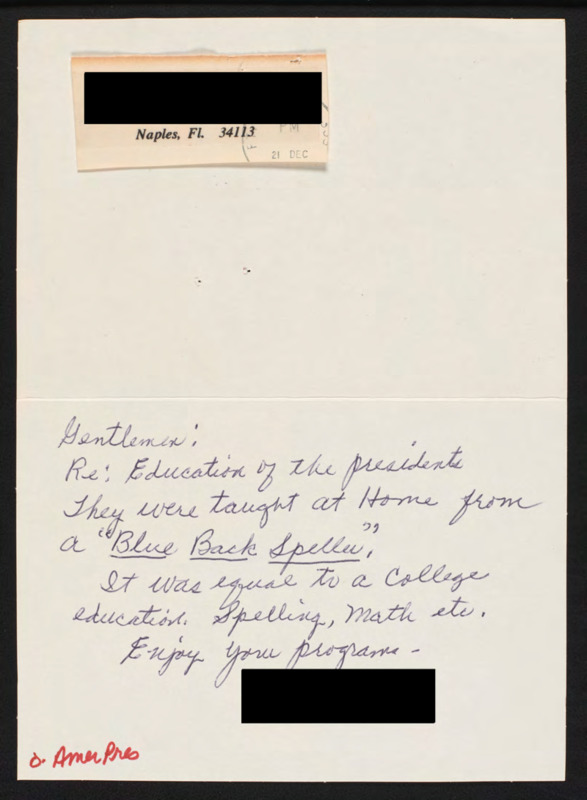 Naples, Fl. 34113
PM
21 DEC
Gentlemen:
Re: Education of the presidents
They were taught at Home from
a "Blue Back Speller".
It was equal to a College
education. Spelling, Math etc.
Enjoy your programs -
o. AmerPres